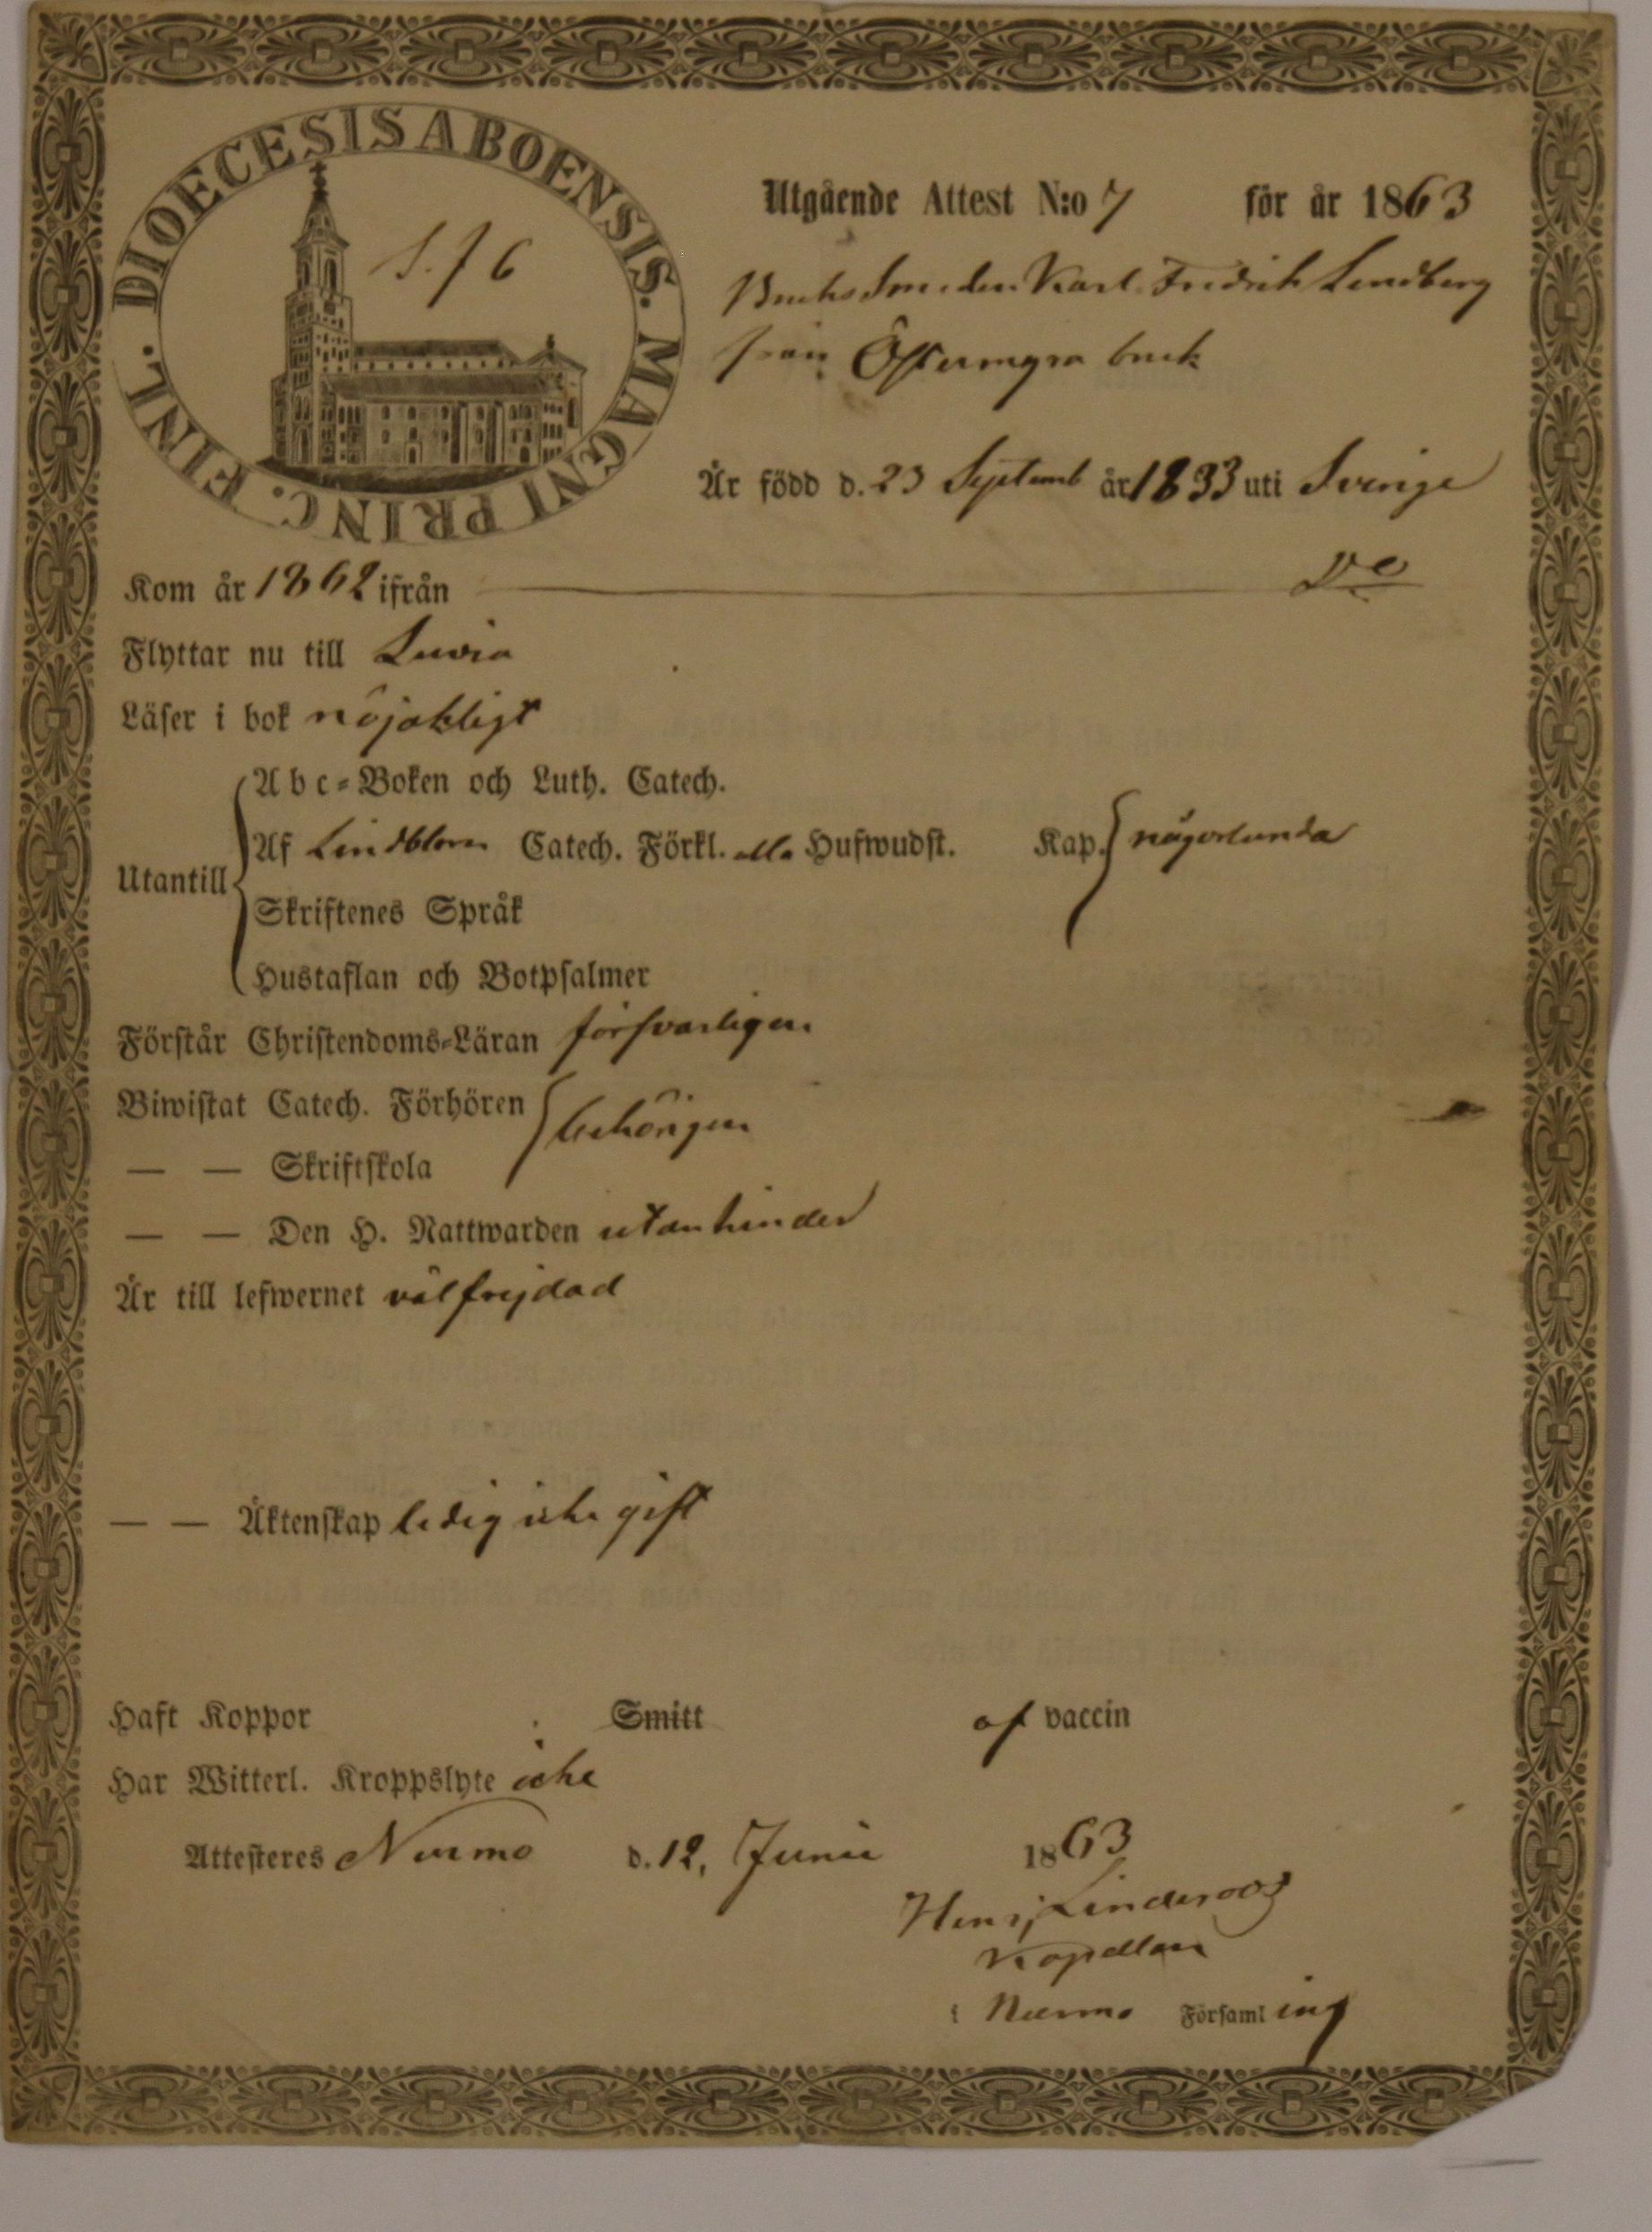 DIOECESIS ABOENSIS. MAGNI PRINC. FINL.
S. 76
Utgående Attest N:o 7 för år 1863
Bruks Smeden Karl Fredrik Lindberg
från Östermyra bruk
Är född d. 23 Septemb år 1833 uti Sverige
Kom år 1862 ifrån — Do
Flyttar nu till Luvia
Läser i bok nöjaktligt
Utantill
Abc-Boken och Luth. Catech.
Af Lindblom Catech. Förkl. alla Hufwudst. Kap. någorlunda
Skriftenes Språk
Hustaflan och Botpsalmer
Förstår Christendoms-Läran försvarligen
Biwistat Catech. Förhören behörigen
— — Skriftskola
— — Den H. Nattwarden utan hinder
Är till lefwernet välfrejdad
— — Äktenskap ledig icke gift
Haft Koppor Smitt af vaccin
Har Witterl. Kroppslyte icke
Attesteres Nurmo d. 12, Junii 1863
Henr. Linderoos
Kapellan
i Nurmo Församling